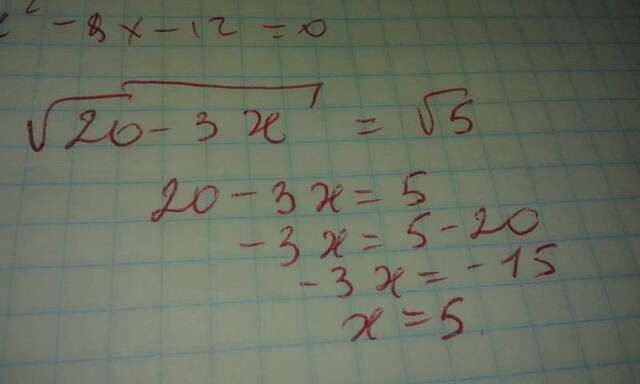 x² - 8x - 12 = 0
√20 - 3x = √5
20 - 3x = 5
-3x = 5 - 20
-3x = -15
x = 5